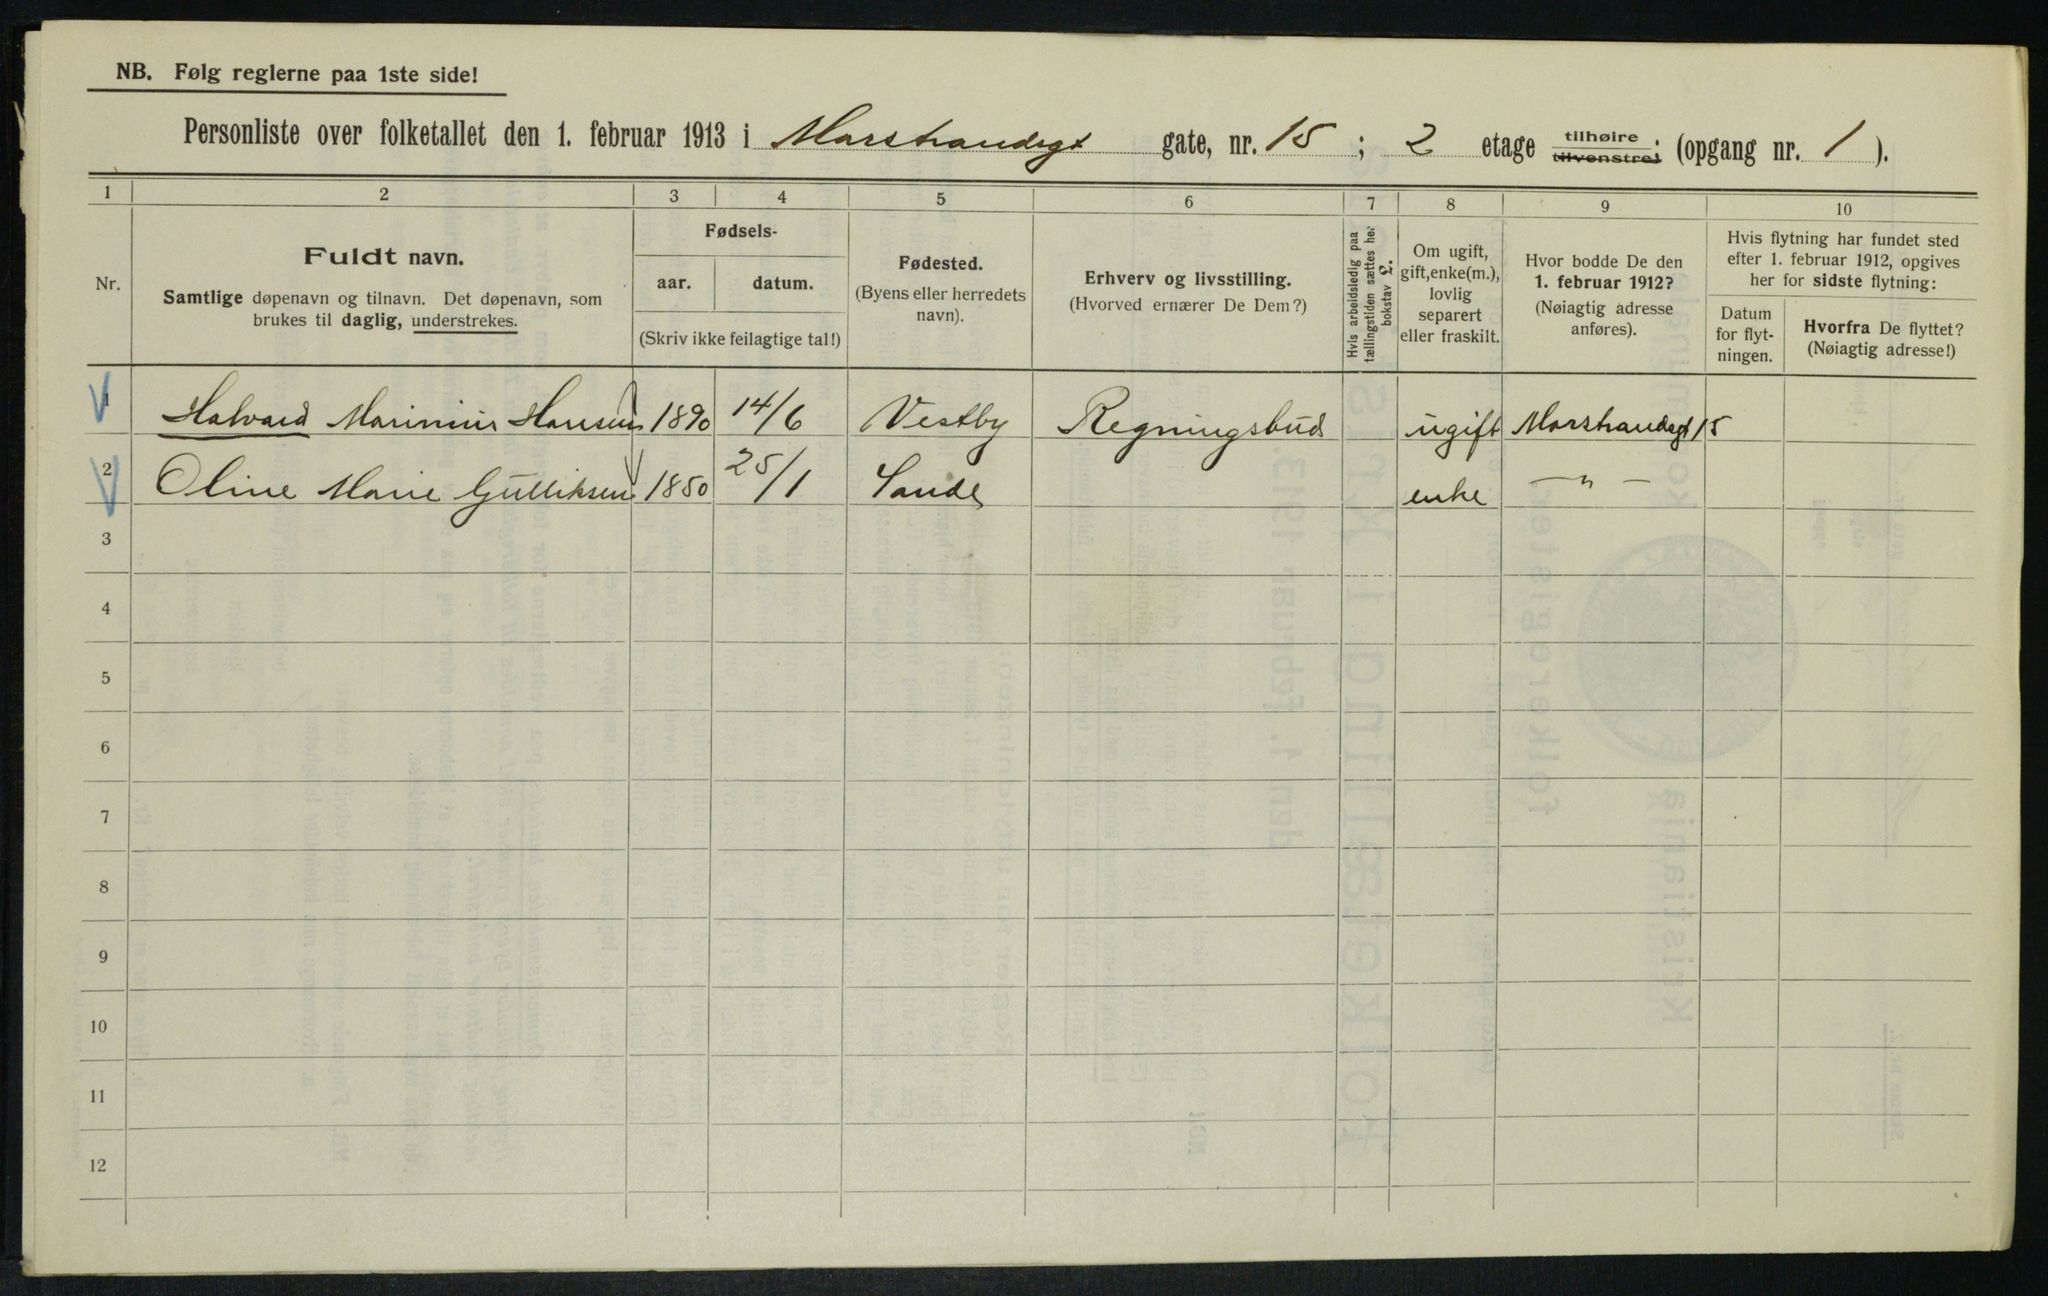 NB. Følg reglerne paa 1ste side!
Personliste over folketallet den 1. februar 1913 i Marstrandsgt gate, nr. 15 ; 2 etage tilhøire tilvenstre; (opgang nr. 1 ).
1 2 3 4 5 6 7 8 9 10
Nr.
Fuldt navn.
Samtlige døpenavn og tilnavn. Det døpenavn, som
brukes til daglig, understrekes.
Fødsels-
aar. datum.
(Skriv ikke feilagtige tal!)
Fødested.
(Byens eller herredets
navn).
Erhverv og livsstilling.
(Hvorved ernærer De Dem?)
Hvis arbeidsledig paa
tællingstiden sættes her
bokstav L.
Om ugift,
gift, enke(m.),
lovlig
separert
eller fraskilt.
Hvor bodde De den
1. februar 1912?
(Nøiagtig adresse
anføres).
Hvis flytning har fundet sted
efter 1. februar 1912, opgives
her for sidste flytning:
Datum
for flyt-
ningen.
Hvorfra De flyttet?
(Nøiagtig adresse!)
1 Halvard Marinius Hansen 1890 14/6 Vestby Regningsbud ugift Marstrandsgt 15
2 Oline Marie Gulliksen 1850 25/1 Sande enke — " —
3
4
5
6
7
8
9
10
11
12